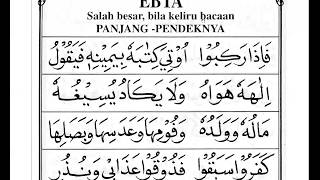 EBTA
Salah besar, bila keliru bacaan
PANJANG -PENDEKNYA
فَاِذَا رَكِبُوْا اُوْتِيَ كِتٰبَهٗ بِيَمِيْنِهٖ فَيَقُوْلُ
اِلٰهَهٗ هَوَاهُ وَلَا يَكَادُ يُسِيْغُهٗ
مَالُهٗ وَوَلَدُهٗ وَفُوْمِهَا وَعَدَسِهَا وَبَصَلِهَا
كَفَرُوْا سَبَقُوْا فَذُوْقُوْا عَذَابِيْ وَنُذُرِ